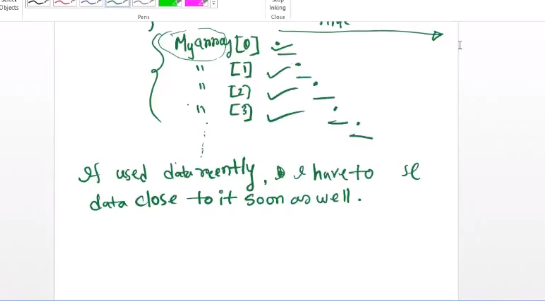 Select
Objects
Pens
Stop
Inking
Close
Myarray [0]
" [1]
" [2]
" [3]
If used data recently, I have to
data close to it soon as well.